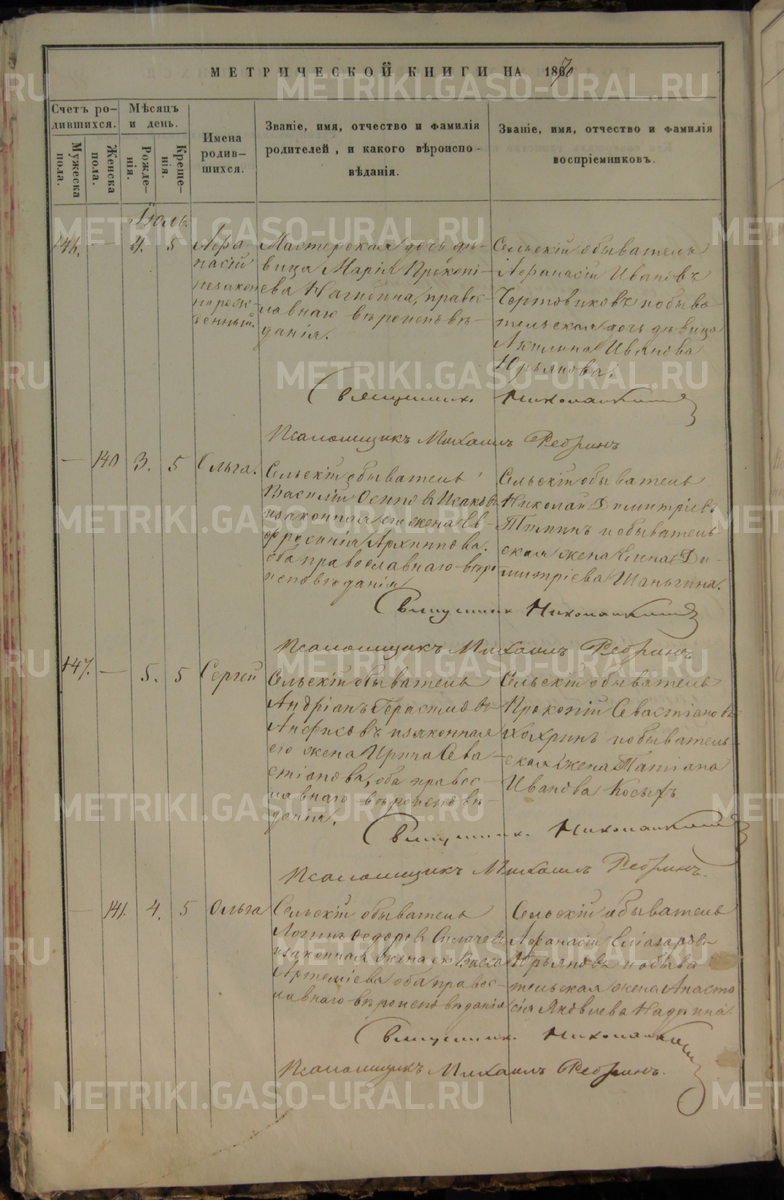 МЕТРИЧЕСКОЙ КНИГИ НА 1870
Счетъ ро-
дившихся.
Мужеска
пола.
Женска
пола.
Мѣсяцъ
и день.
Рожде-
нія.
Креще-
нія.
Имена
родив-
шихся.
Званіе, имя, отчество и фамилія
родителей, и какого вѣроиспо-
вѣданія.
Званіе, имя, отчество и фамилія
воспріемниковъ.
Іюль.
146. — 4. 5
Афа
насій
незакон
норож-
денный.
Мастерская дочь дѣ-
вица Марія Прокопі-
ева Нагибина, право-
славнаго вѣроисповѣ-
данія.
Сельскій обыватель
Афанасій Ивановъ
Чертовиковъ и обыва
тельская дочь девица
Акилина Иванова
Юрьянова.
Священникъ
Псаломщикъ Михаилъ Ребринъ
— 140 3. 5 Ольга.
Сельскій обыватель
Василій Осиповъ Исаковъ
и законная его жена Ев-
фросинія Архипова,
оба православнаго вѣро
исповѣданія
Сельскій обыватель
Николай Димитріевъ
и обыватель
ская жена Елена Ди-
митріева Шаньгина.
Священникъ
Псаломщикъ Михаилъ Ребринъ.
147. — 5. 5 Сергей
Сельскій обыватель
Андріанъ Герасимовъ
Анфисовъ и законная
его жена Ирина Сева
стіанова, оба право-
славнаго вѣроисповѣ-
данія.
Сельскій обыватель
Прокопій Севастіановъ
и обыватель-
ская жена Татіана
Иванова Косыхъ
Священникъ
Псаломщикъ Михаилъ Ребринъ.
— 141. 4. 5 Ольга
Сельскій обыватель
Логинъ Федоровъ
и законная жена его Васса
Артеміева оба право-
славнаго вѣроисповѣданія
Сельскій обыватель
Афанасій Елиазаровъ
Юрьяновъ и обыва
тельская жена Анаста
сія Яковлева
Священникъ
Псаломщикъ Михаилъ Ребринъ.
METRIKI.GASO-URAL.RU